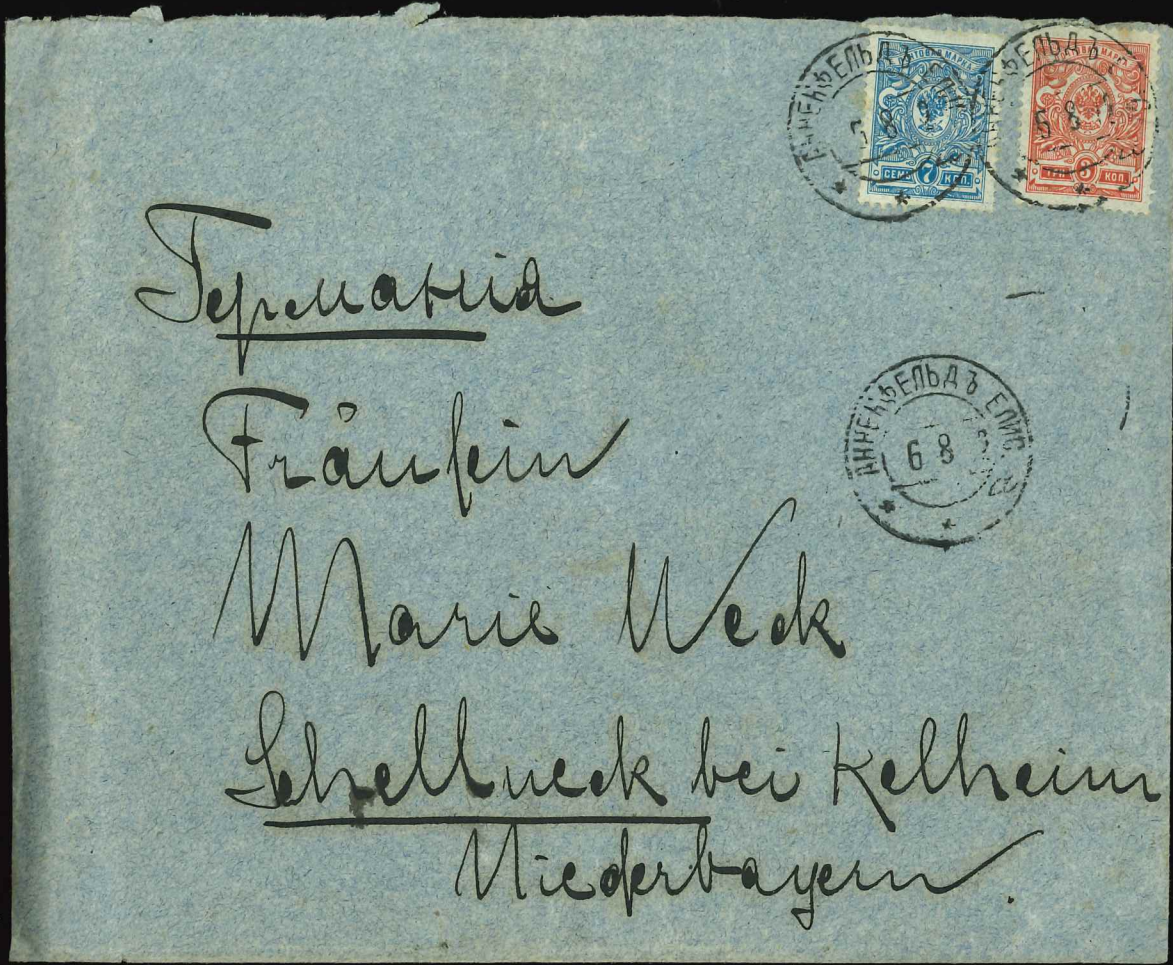 АННЕНФЕЛЬДЪ ЕЛИС.
6 8
ПОЧТОВАЯ МАРКА
СЕМЬ 7 КОП.
АННЕНФЕЛЬДЪ
6 8
МАРКА
3 КОП.
Германія
АННЕНФЕЛЬДЪ ЕЛИС.
6 8
Fräulein
Marie Weck
Schellneck bei Kelheim
Niederbayern.